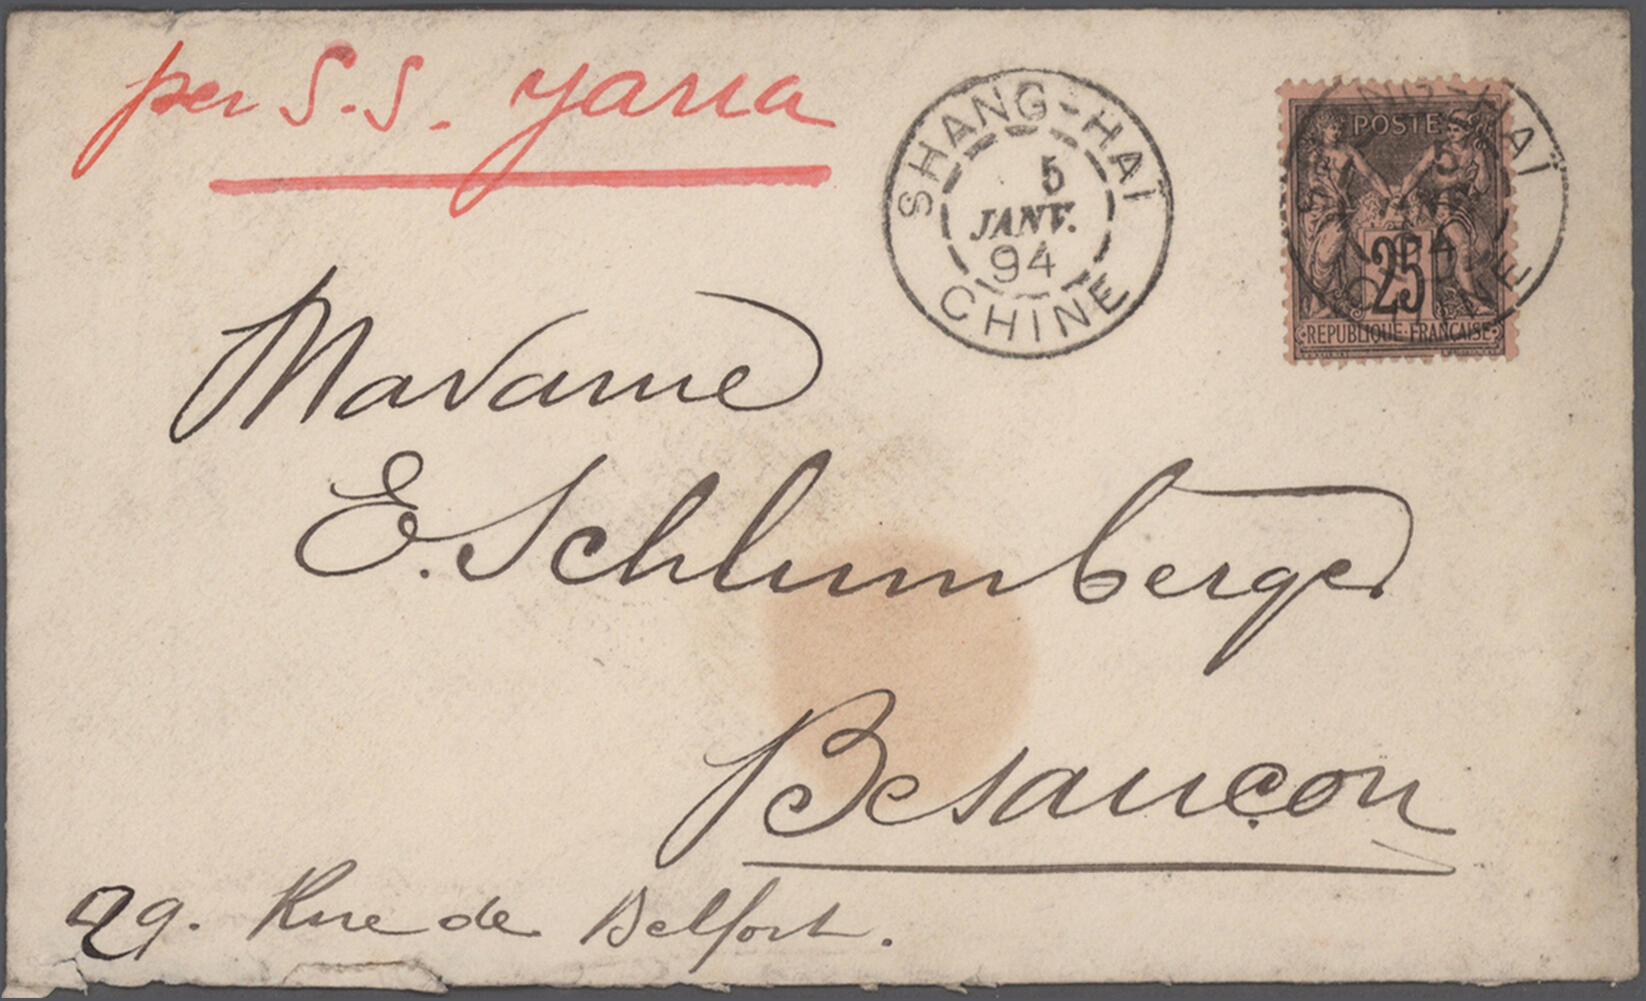 per S.S. Yarra
SHANG-HAÏ
5
JANV.
94
CHINE
POSTES
25
REPUBLIQUE FRANÇAISE
Madame
E. Schlumberger
Besançon
29. Rue de Belfort.